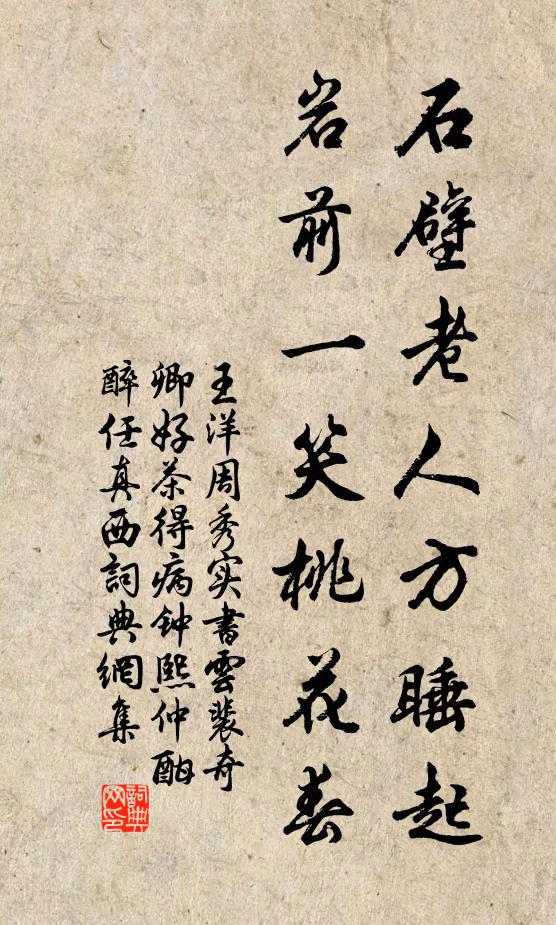 石壁老人方睡起
岩前一笑桃花春
王洋周秀实書雲裴奇
卿好茶得病钟熙仲酣
醉任真西詞典網集
詞典
网印